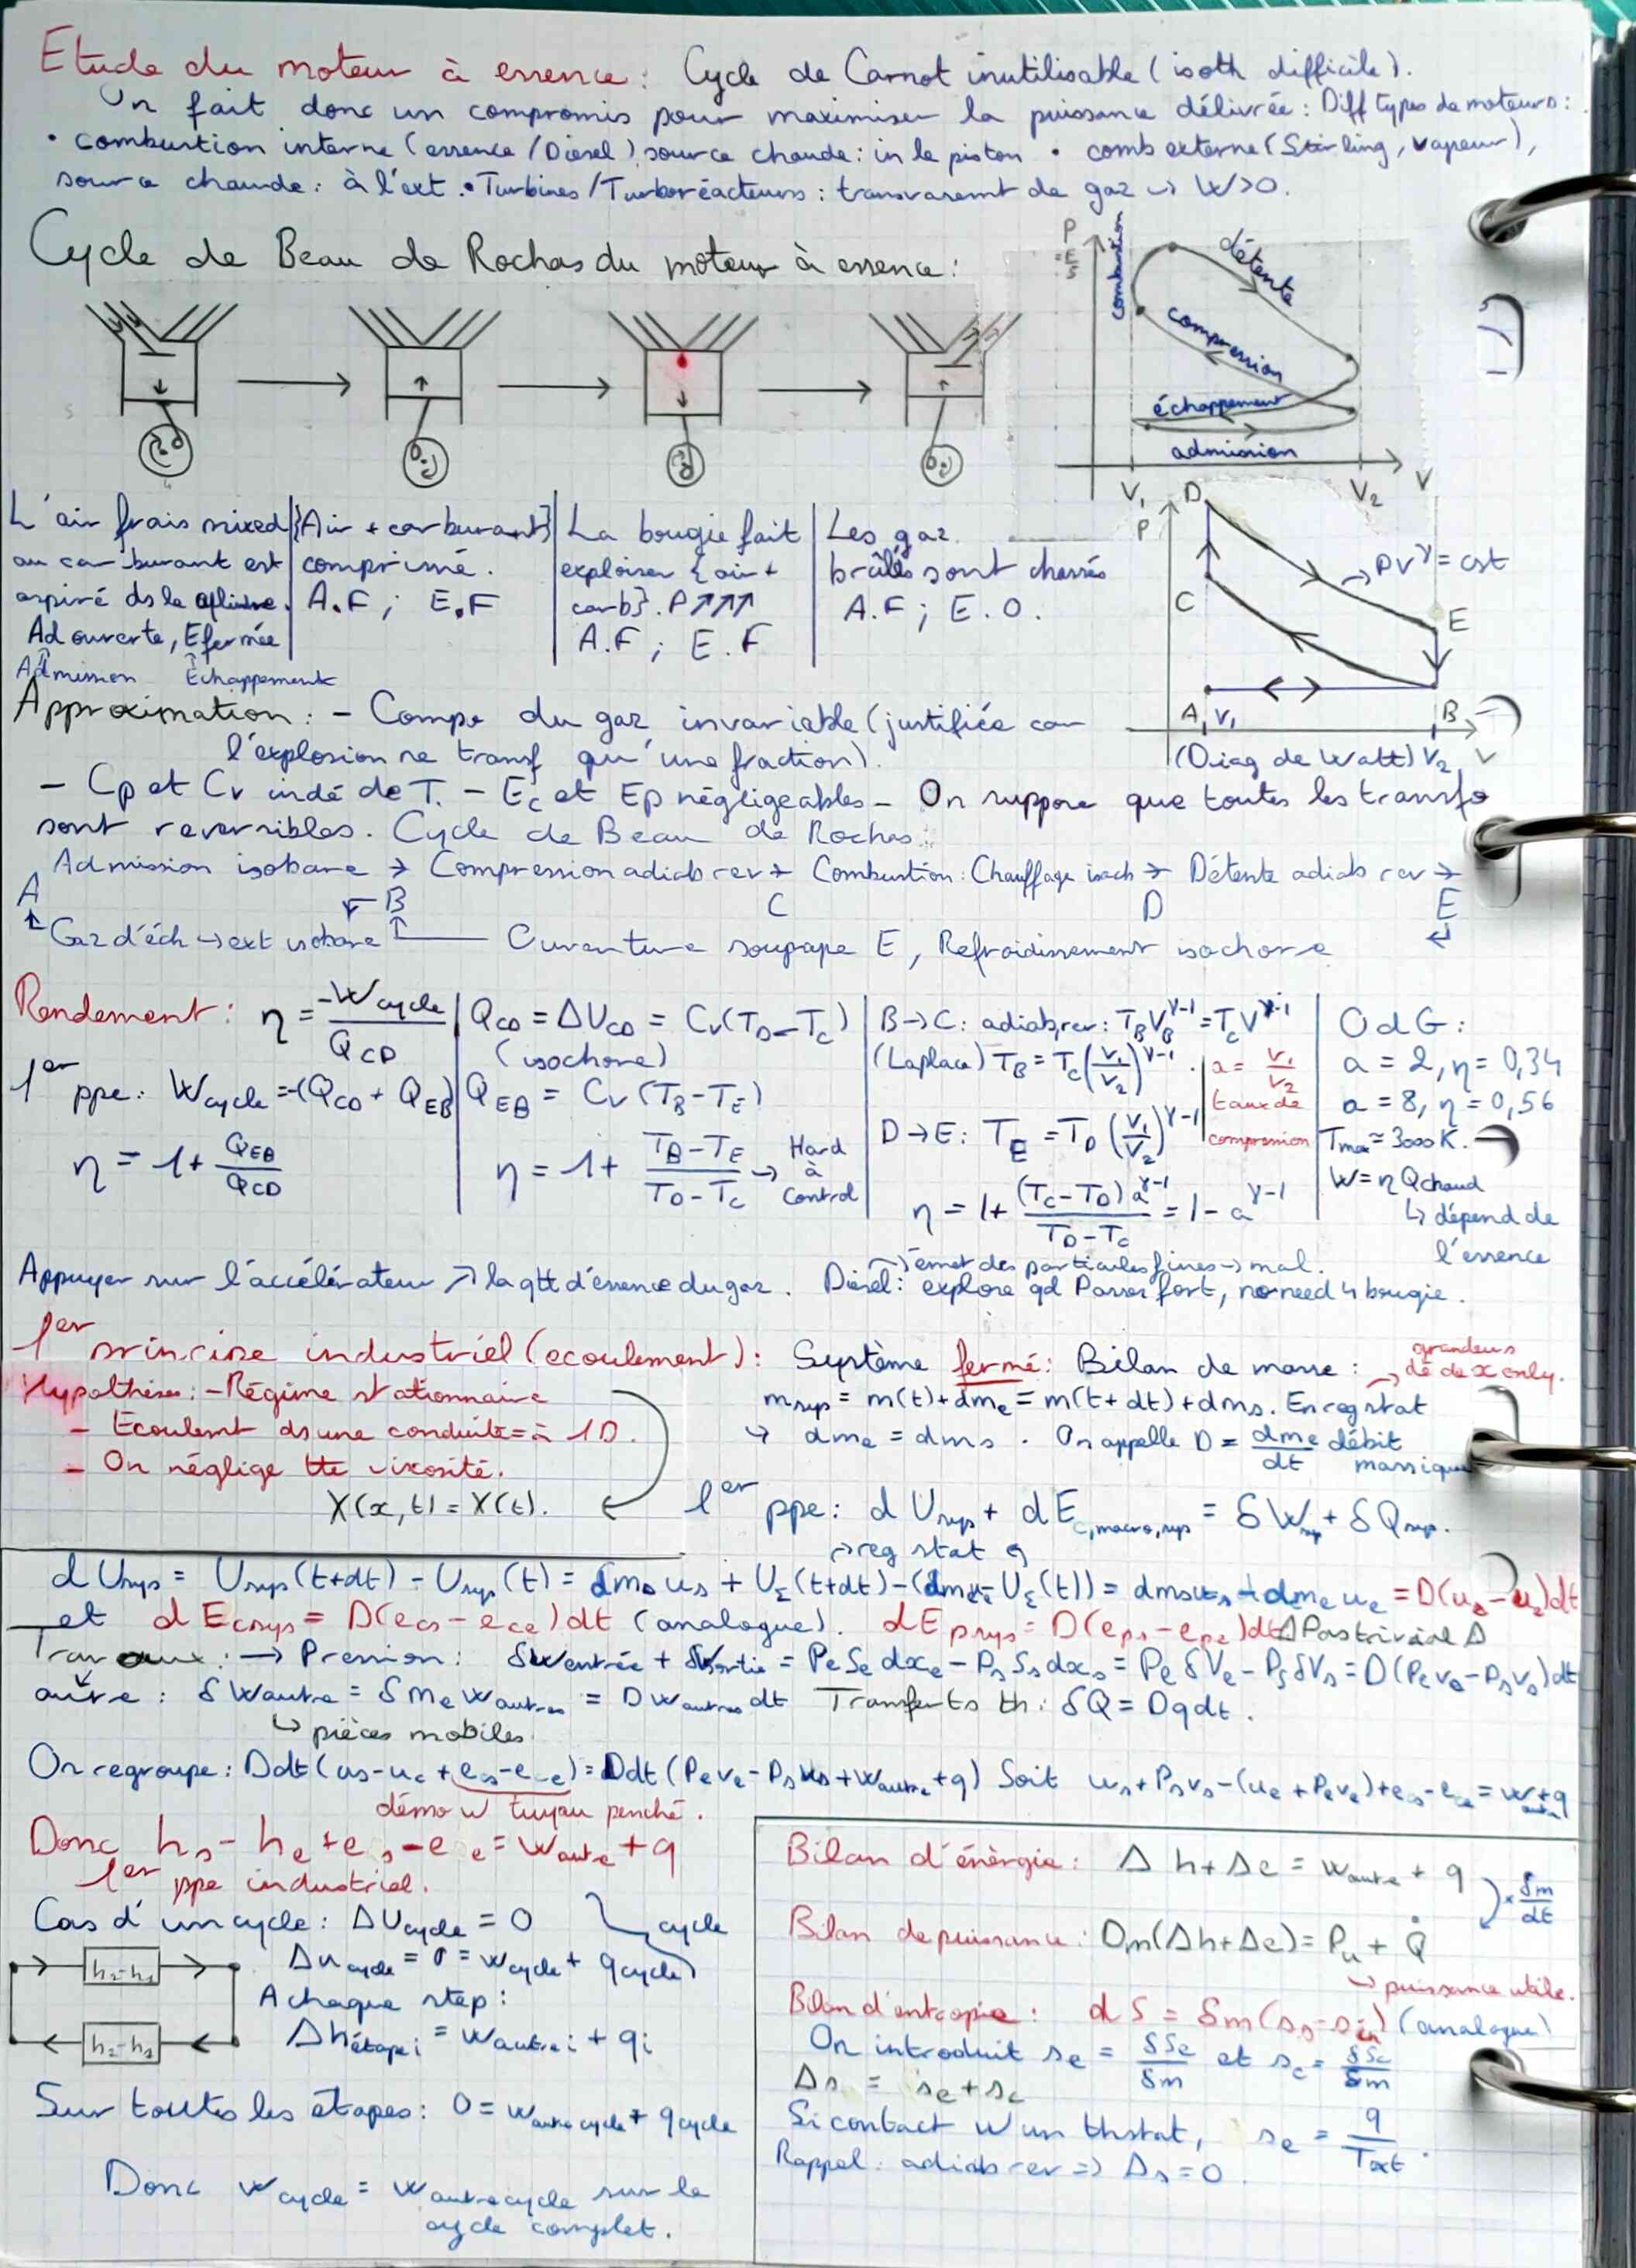 Etude du moteur à essence : Cycle de Carnot inutilisable (isoth difficile).
On fait donc un compromis pour maximiser la puissance délivrée : Diff types de moteurs :
• combustion interne (essence / Diesel) source chaude : in le piston • comb externe (Stirling, vapeur),
source chaude : à l'ext. • Turbines / Turboréacteurs : transvasemt de gaz → W>0.
Cycle de Beau de Rochas du moteur à essence :
P
combustion
détente
compression
échappement
admission
V₁
V₂
V
L'air frais mixed
au carburant est
aspiré ds le
Ad ouverte, E fermée
Admission Echappement
{Air + carburant}
comprimé.
A.F ; E.F
La bougie fait
exploser {air +
carb}. P↗↗↗
A.F ; E.F
Les gaz
brûlés sont chassés
A.F ; E.O.
P
D
→ PVᵞ = cst
C
E
A
V₁
B
(Diag de Watt) V₂ V
Approximation : - Compo du gaz invariable (justifiée car
l'explosion ne transf qu'une fraction).
- Cp et Cv indé de T. - Ec et Ep négligeables - On suppose que toutes les transfo
sont reversibles. Cycle de Beau de Rochas :
Admission isobare → Compression adiab rev → Combustion : Chauffage isoch → Détente adiab rev →
A B C D E
Gaz d'éch → ext isobare Ouverture soupape E, Refroidissement isochore
Rendement : η = -Wcycle / QCD
1er ppe : Wcycle = -(QCD + QEB)
η = 1 + QEB / QCD
QCD = ΔUCD = Cv(TD - TC)
(isochore)
QEB = Cv (TB - TE)
η = 1 + (TB - TE) / (TD - TC) → Hard à control
B→C : adiab, rev : TB VBᵞ⁻¹ = TC Vᵞ⁻¹
(Laplace) TB = TC (V₁/V₂)ᵞ⁻¹.
a = V₁/V₂
taux de
compression
D→E : TE = TD (V₁/V₂)ᵞ⁻¹
η = 1 + (TC - TD) aᵞ⁻¹ / (TD - TC) = 1 - aᵞ⁻¹
OdG :
a = 2, η = 0,34
a = 8, η = 0,56
Tmax ≈ 3000 K.
W = η Qchaud
↳ dépend de
l'essence
→ émet des particules fines → mal.
Appuyer sur l'accélérateur ↗ la qtt d'essence du gaz. Diesel : explose qd P assez fort, no need 4 bougie.
1er principe industriel (ecoulement) :
Hypothèses : - Régime stationnaire
- Ecoulemt ds une conduite = à 1D.
- On néglige tte viscosité.
X(x,t) = X(t).
Système fermé : Bilan de masse : → grandeurs dé de x only.
msys = m(t) + dme = m(t + dt) + dms. En reg stat
↳ dme = dms. On appelle D = dme/dt débit massique
1er ppe : dUsys + dEc,macro,sys = δWsys + δQsys.
→ reg stat
dUsys = Usys(t+dt) - Usys(t) = dms us + UΣ(t+dt) - (dme ue UΣ(t)) = dms us - dme ue = D(us - ue)dt
et dEcsys = D(ecs - ece)dt (analogue). dEpsys = D(eps - epe)dt Δ Pas trivial Δ
Travaux : → Pression : δWentrée + δWsortie = Pe Se dxe - Ps Ss dxs = Pe δVe - Ps δVs = D(Peve - Psvs)dt
autre : δWautre = δme wautres = D wautres dt Transferts th : δQ = Dqdt.
↳ pièces mobiles.
On regroupe : Ddt(us - ue + es - ee) = Ddt (Peve - Psvs + wautre + q) Soit us + Psvs - (ue + Peve) + es - ee = wautre + q
démo w tuyau penché.
Donc hs - he + es - ee = wautre + q
1er ppe industriel.
Cas d'un cycle : ΔUcycle = 0
cycle
Δucycle = 0 = wcycle + qcycle
A chaque step :
Δhétape i = wautre i + qi
h₂-h₁
h₂-h₁
Sur toutes les étapes : 0 = wautre cycle + qcycle
Donc wcycle = wautre cycle sur le
cycle complet.
Bilan d'énergie : Δh + Δe = wautre + q
× δm/dt
Bilan de puissance : Dm(Δh + Δe) = Pu + Q̇
↳ puissance utile.
Bilan d'entropie : dS = δm(ss - sin) (analogue)
On introduit se = δSe/δm et sc = δSc/δm
Δs = se + sc
Si contact w un thstat, se = q/Text.
Rappel : adiab rev ⇒ Δs = 0.